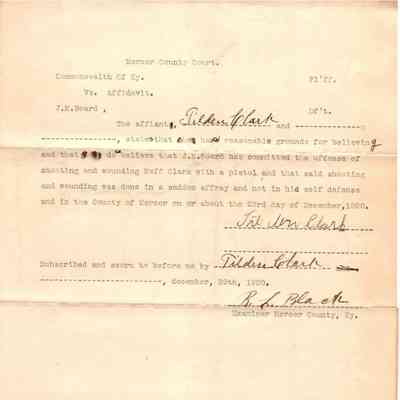 Mercer County Court.
Commonwealth Of Ky. Pl'ff.
Vs. Affidavit.
J.M.Board , Df't.
The affiant, Tilden Clark and
, state that he has reasonable grounds for believing
and that do believe that J.M.Board has committed the offense of
shooting and wounding Neff Clark with a pistol and that said shooting
and wounding was done in a sudden affray and not in his self defense
and in the County of Mercer on or about the 23rd day of December,1920.
Tilden Clark
Subscribed and sworn to before me by Tilden Clark
, December, 29th, 1920.
R. L. Black
Examiner Mercer County, Ky.